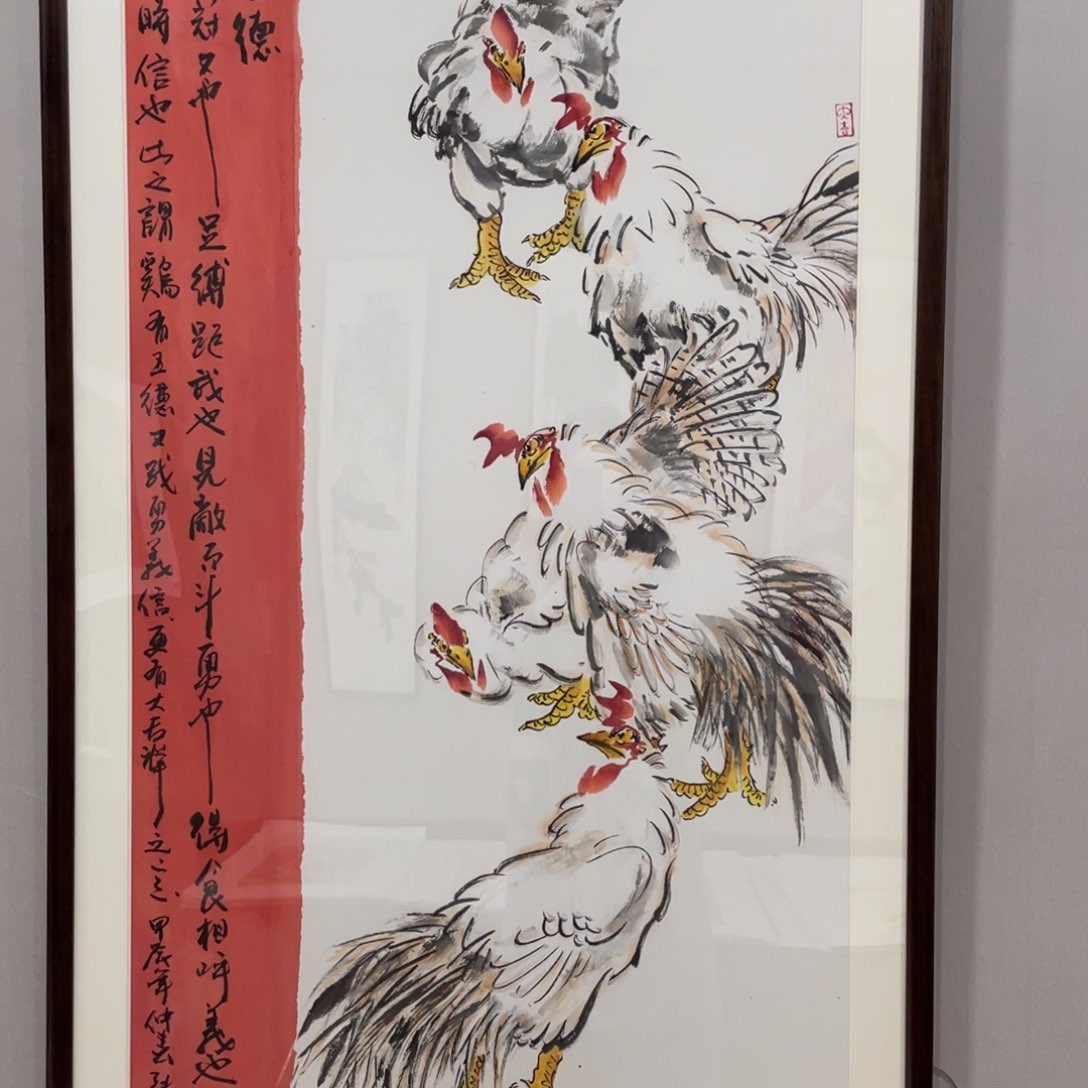 德
冠文也足縛距武也見敵而斗勇也得食相呼義也
時信也此之謂鷄有五德文武勇義信更有大吉祥之意甲辰年仲春
大吉